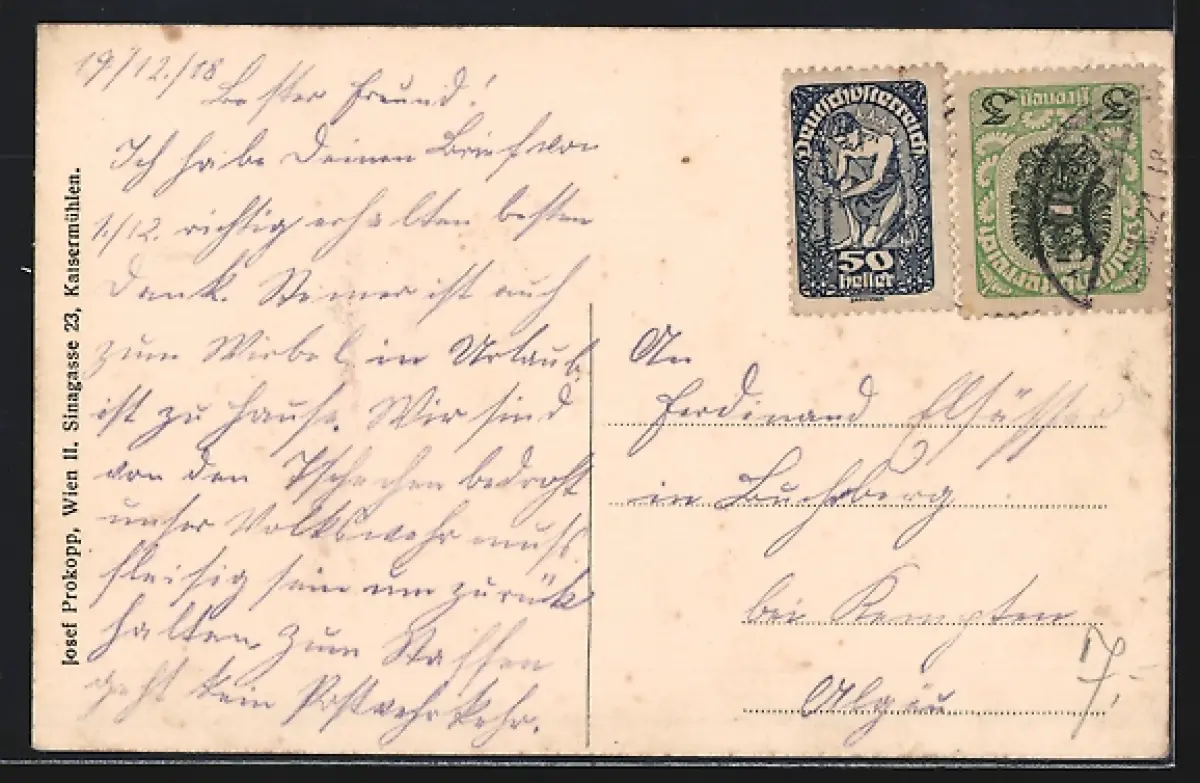 19/12./18
Bester Freund!
Ich habe Deinen Brief von
1./12. richtig erhalten besten
Dank. Steiner ist auch
zum Wirbel in Urlaub
ist zu Hause. Wir sind
von den Tschechen bedroht
unser Volkswehr muss
fleißig sein um zurück
halten. Zum Staffen
geht kein Postverkehr.
Josef Prokopp, Wien II. Sinagasse 23, Kaisermühlen.
Deutschösterreich
50
heller
3 Kronen 3
Deutschösterreich
21 18
An
Ferdinand Elsässer
in Buchberg
bei Kempten
Algäu
7,-